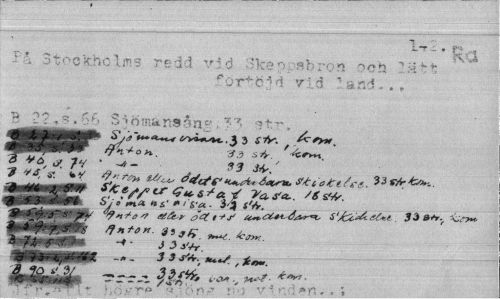 1-2. Rd
På Stockholms redd vid Skeppsbron och lätt
förtöjd vid land...
B 22,s.66 Sjömansång.33 str.
Sjömansvisan. 33 str., kom.
Anton. 33 str., kom.
B 40, s. 74 -"- 33 str.
B 45, s. 64 Anton eller ödets underbara skickelse. 33 str. kom.
Skeppet Gustaf Vasa. 18 str.
B 53, s. 56 Sjömansvisa. 32 str.
74 Anton eller ödets underbara skickelse. 33 str., kom
Anton. 33 str. mel. kom.
B 72, s. -"- 33 str.
-"- 33 str., mel., kom.
B 90 s. 31 33 str. var., not. kom.
Jfr. högre sjöng nu vinden..;